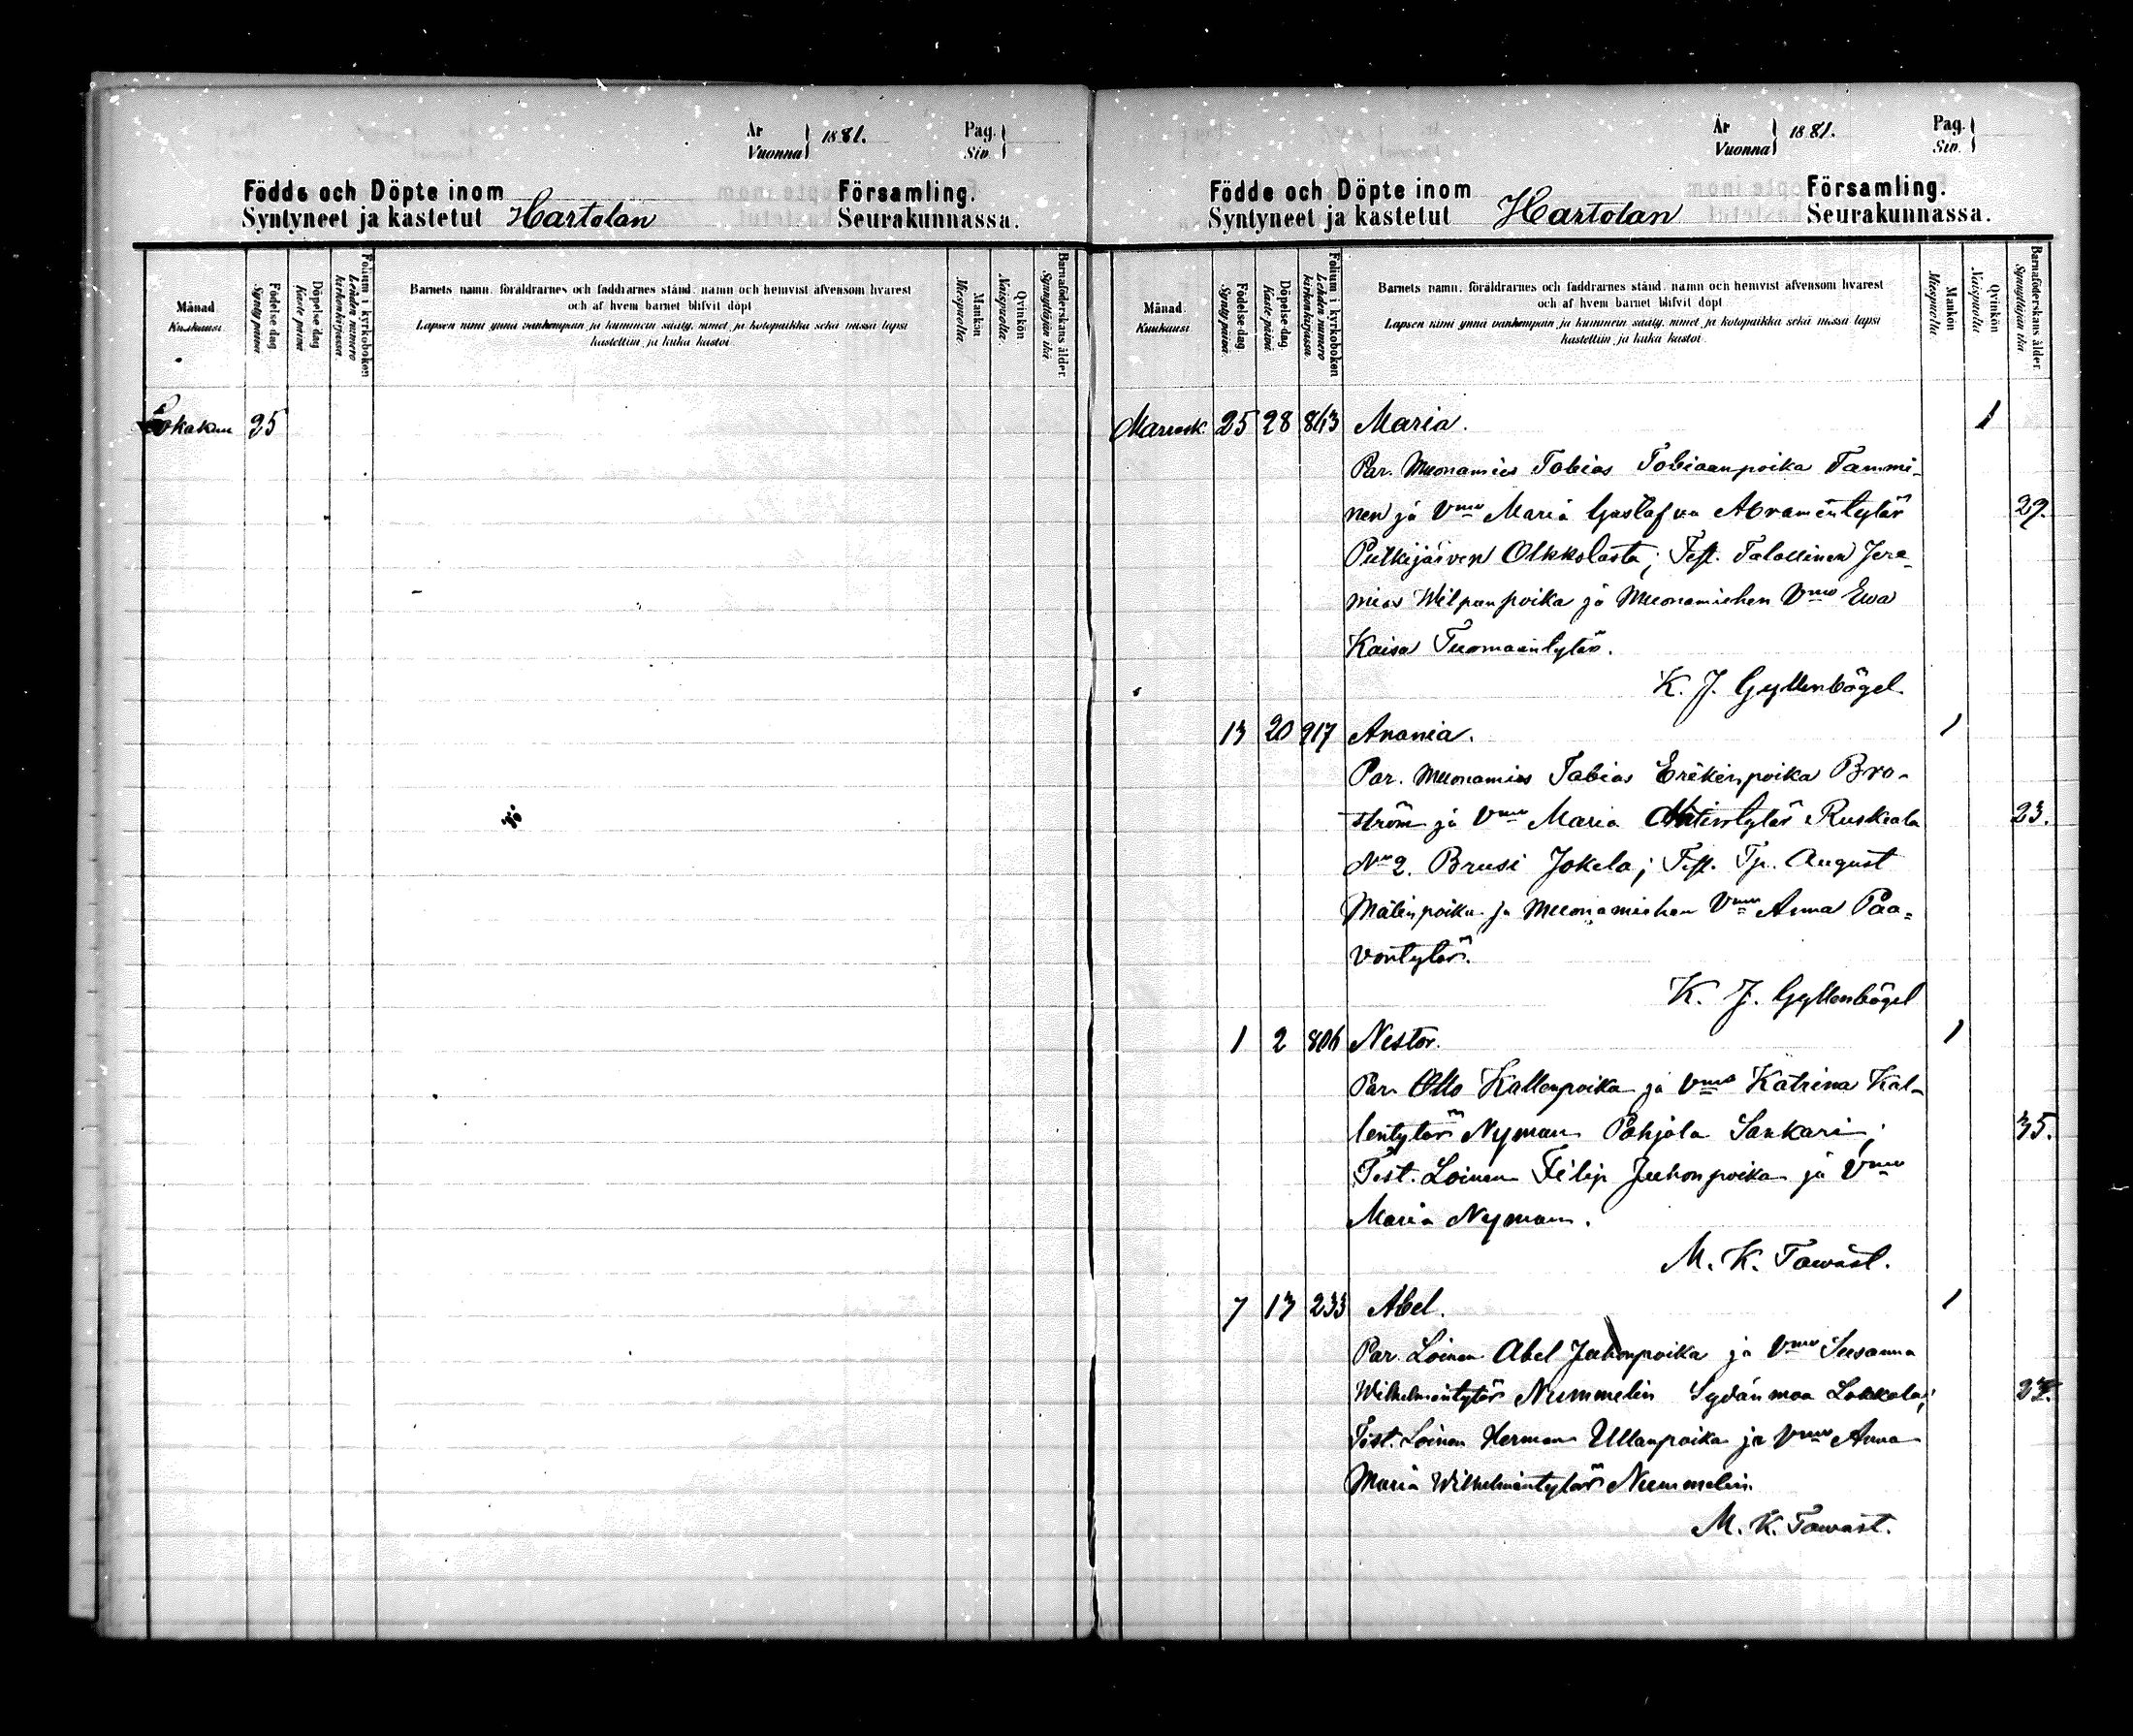 År
Vuonna 1881.
Pag.
Siv.
Födde och Döpte inom Församling.
Syntyneet ja kastetut Hartolan Seurakunnassa.
Månad
Kuukausi
Födelse dag
Synty päivä
Döpelse dag
Kaste päivä
Folium i kyrkoboken
Lehden numero kirkonkirjassa
Barnets namn, föräldrarnes och faddrarnes stånd, namn och hemvist äfvensom hvarest
och af hvem barnet blifvit döpt
Lapsen nimi ynnä vanhempain ja kummein sääty, nimet ja kotopaikka sekä missä lapsi
kastettiin ja kuka kastoi
Mankön
Miespuolia
Qvinkön
Naispuolia
Barnaföderskans ålder
Synnyttäjän ikä
Lokakuu 25
År
Vuonna 1881.
Pag.
Siv.
Födde och Döpte inom Församling.
Syntyneet ja kastetut Hartolan Seurakunnassa.
Månad
Kuukausi
Födelse-dag
Synty päivä
Döpelse dag
Kaste päivä
Folium i kyrkoboken
Lehden numero kirkonkirjassa
Barnets namn, föräldrarnes och faddrarnes stånd, namn och hemvist äfvensom hvarest
och af hvem barnet blifvit döpt
Lapsen nimi ynnä vanhempain ja kummein sääty, nimet ja kotopaikka sekä missä lapsi
kastettiin ja kuka kastoi
Mankön
Miespuolia
Qvinkön
Naispuolia
Barnaföderskans ålder
Synnyttäjän ikä
Marrask. 25 28 863 Maria. 1
Par. Muonamies Tobias Tobiaanpoika Tammi-
nen ja Vmo Maria Gustafva Abramintytär 29.
Putkijärven Olkkolasta; Test. Talollinen Jere-
mias Wilpunpoika ja Muonamiehen Vmo Ewa
Kaisa Tuomaantytär.
K. J. Gyllenbögel
13 20 917 Anania. 1
Par. Muonamies Tobias Erikinpoika Bro-
ström ja Vmo Maria Matintytär Ruskeala 23.
No 2. Brusi Jokela; Test. Tp. August
Matinpoika ja Muonamiehen Vmo Anna Paa-
vontytär.
K. J. Gyllenbögel
1 2 806 Nestor. 1
Par Otto Kallenpoika ja Vmo Katrina Kal-
lentytär Nyman Pohjola Sankari; 35.
Test. Loinen Filip Juhonpoika ja Vmo
Maria Nyman.
M. K. Tawast.
7 13 233 Abel. 1
Par. Loinen Abel Juhonpoika ja Vmo Susanna
Wilhelmintytär Nummelin Sydänmaa Lokkala;
Test. Loinen Herman Ullanpoika ja Vmo Anna
Maria Wilhelmintytär Nummelin
M. K. Tawast.